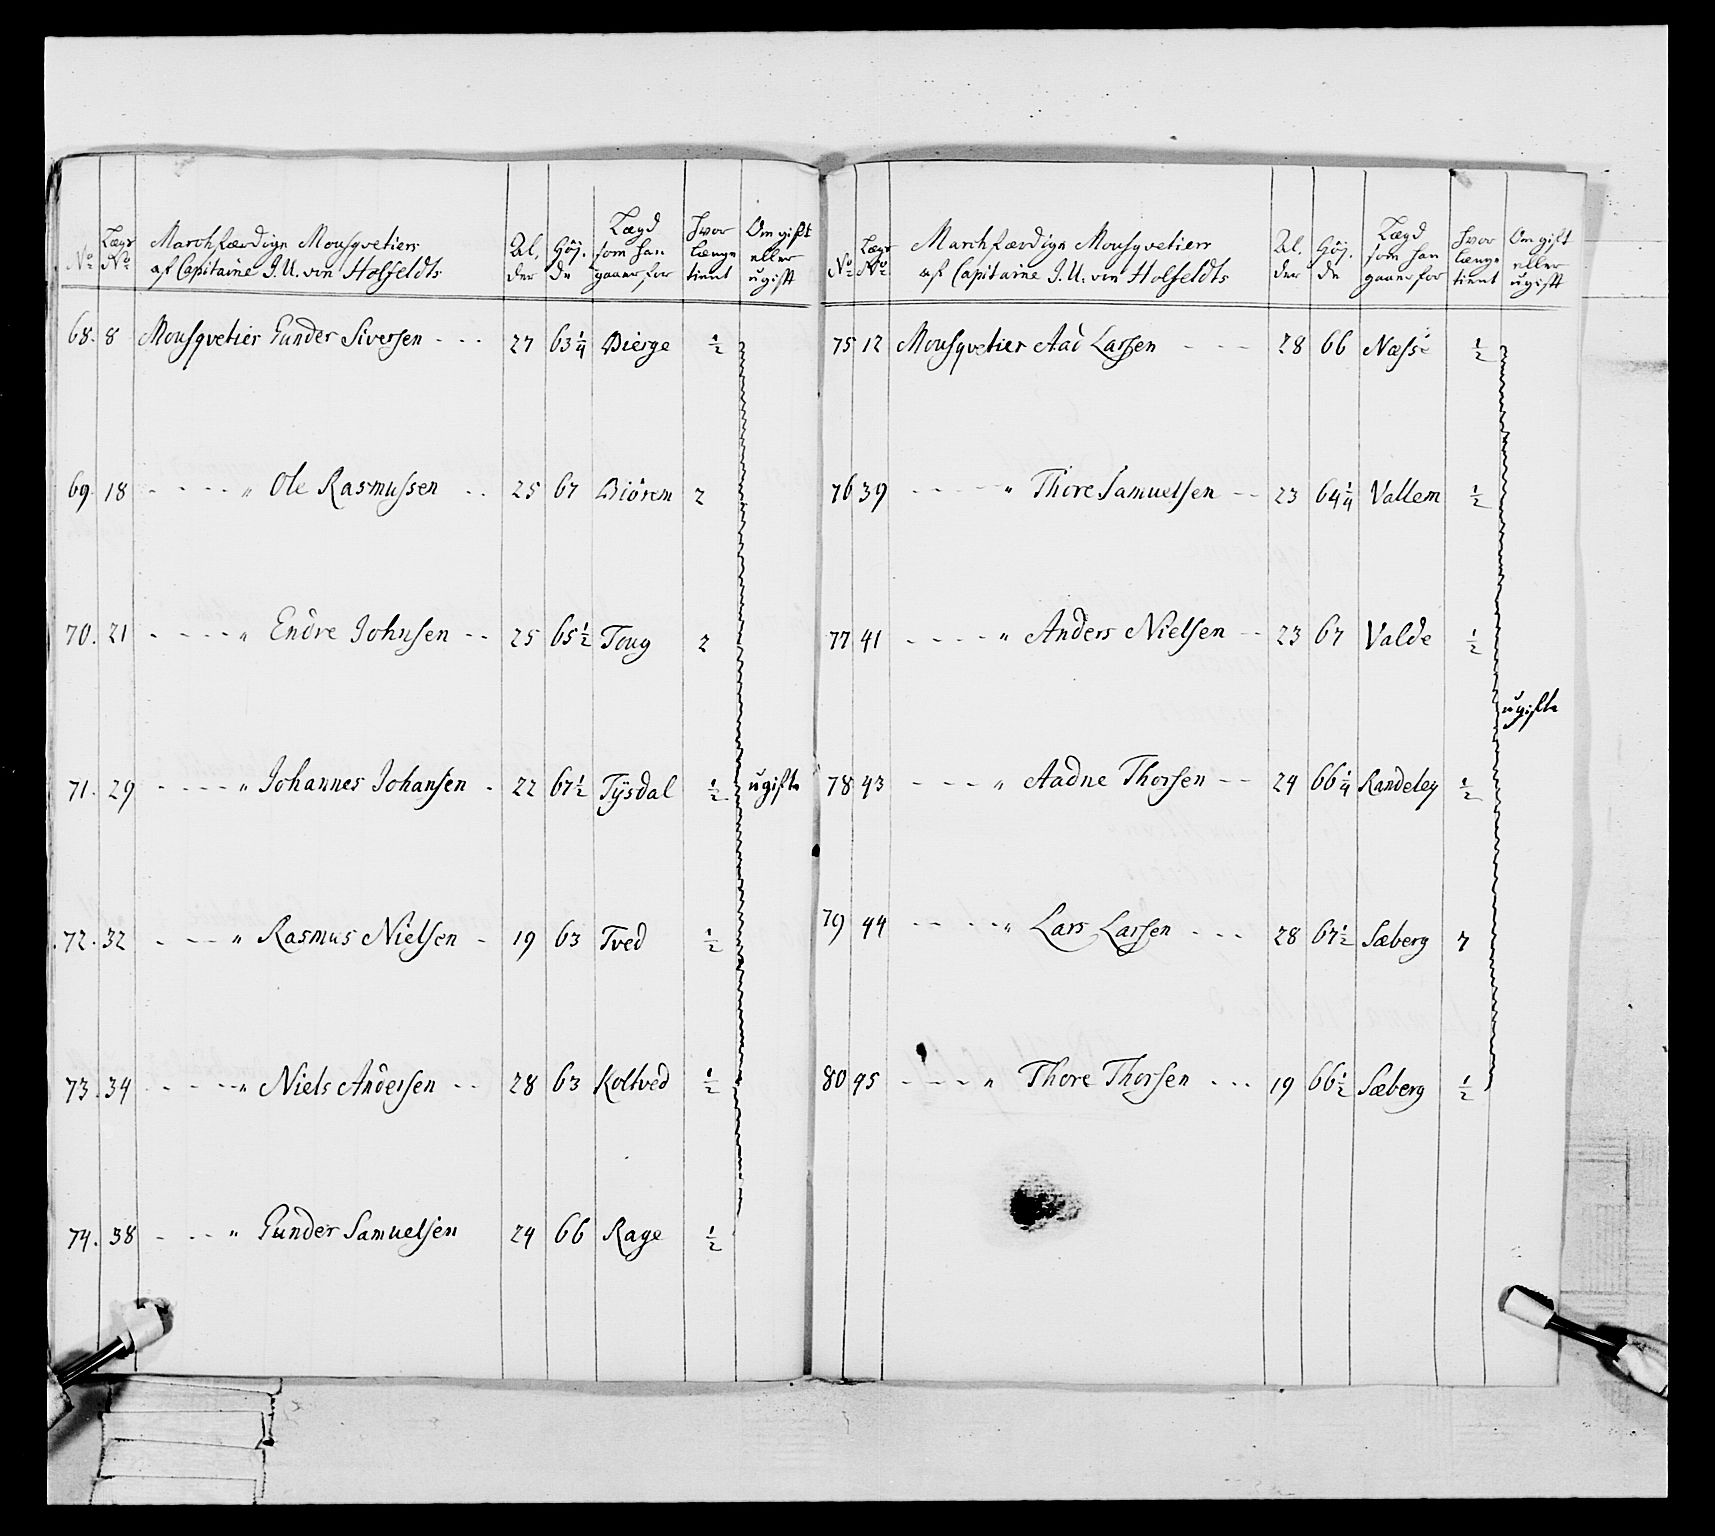 No Lægs No Marchfærdige Mousqvetiers af Capitaine J. U. von Holfeldts Al, der Høj. de Lægd som han gaaer for Hvor længe tient Om gift eller ugift
68. 8 Mousqvetier Gunder Siversen - - - 27 63 1/4 Bierge 1/2
69. 18 - - - - " Ole Rasmussen - - 25 67 Biörem 2
70. 21 - - - - " Endre Johnsen - - 25 65 1/2 Toug 2
71. 29 - - - - " Johannes Johansen - 22 67 1/2 Tÿsdal 1/2 ugifte
72. 32 - - - " Rasmus Nielsen - 19 63 Tved 1/2
73. 34 - - - - " Niels Andersen - - 28 63 Koltved 1/2
74. 38 - - - " Gunder Samuelsen 24 66 Rage 1/2
No Lægs No Marchfærdige Mousqvetierr af Capitaine J. U. von Holfeldts Al, der Høj. de Lægd som han gaaer for Hvor længe tient Om gift eller ugift
75 12 Mousqvetier Aad Larsen - - - 28 66 Næss 1/2
76 39 - - - - " Thore Samuelsen - - 23 64 1/4 Vallem 1/2
77 41 - - - - " Anders Nielsen - - 23 67 Valde 1/2
ugifte
78 43 - - - " Aadne Thorsen - - 24 66 1/4 Randeley 1/2
79 44 - - - - " Lars Larsen - - - 28 67 1/2 Sæberg 7
80 45 - - - - " Thore Thorsen - - - 19 66 1/2 Sæberg 1/2